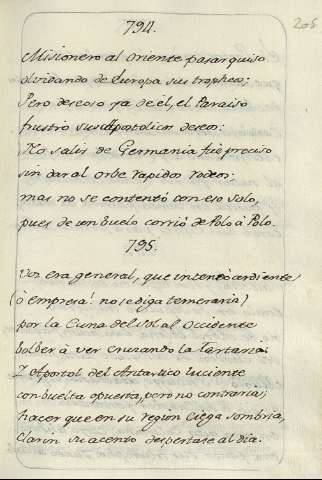 794. 205
Misionero al oriente pasar quiso
olvidando de Europa sus tropheos:
Pero deseoso ya de èl, el Paraiso
frustrò sus Apostolicos deseos:
No salir de Germania fue preciso
sin dar al orbe rapidos rodeos:
mas no se contentò con eso solo,
pues de un buelo corriò de Polo à Polo.
795.
Voz era general, que intentò ardiente
(ò empresa! no se diga temeraria)
por la Cuna del Sol al Occidente
bolber à ver cruzando la Tartaria:
Y Apostol del Antartico luciente
con buelta opuesta, pero no contraria,
hacer que en su region ciega sombria,
clarin su acento despertase al dia.